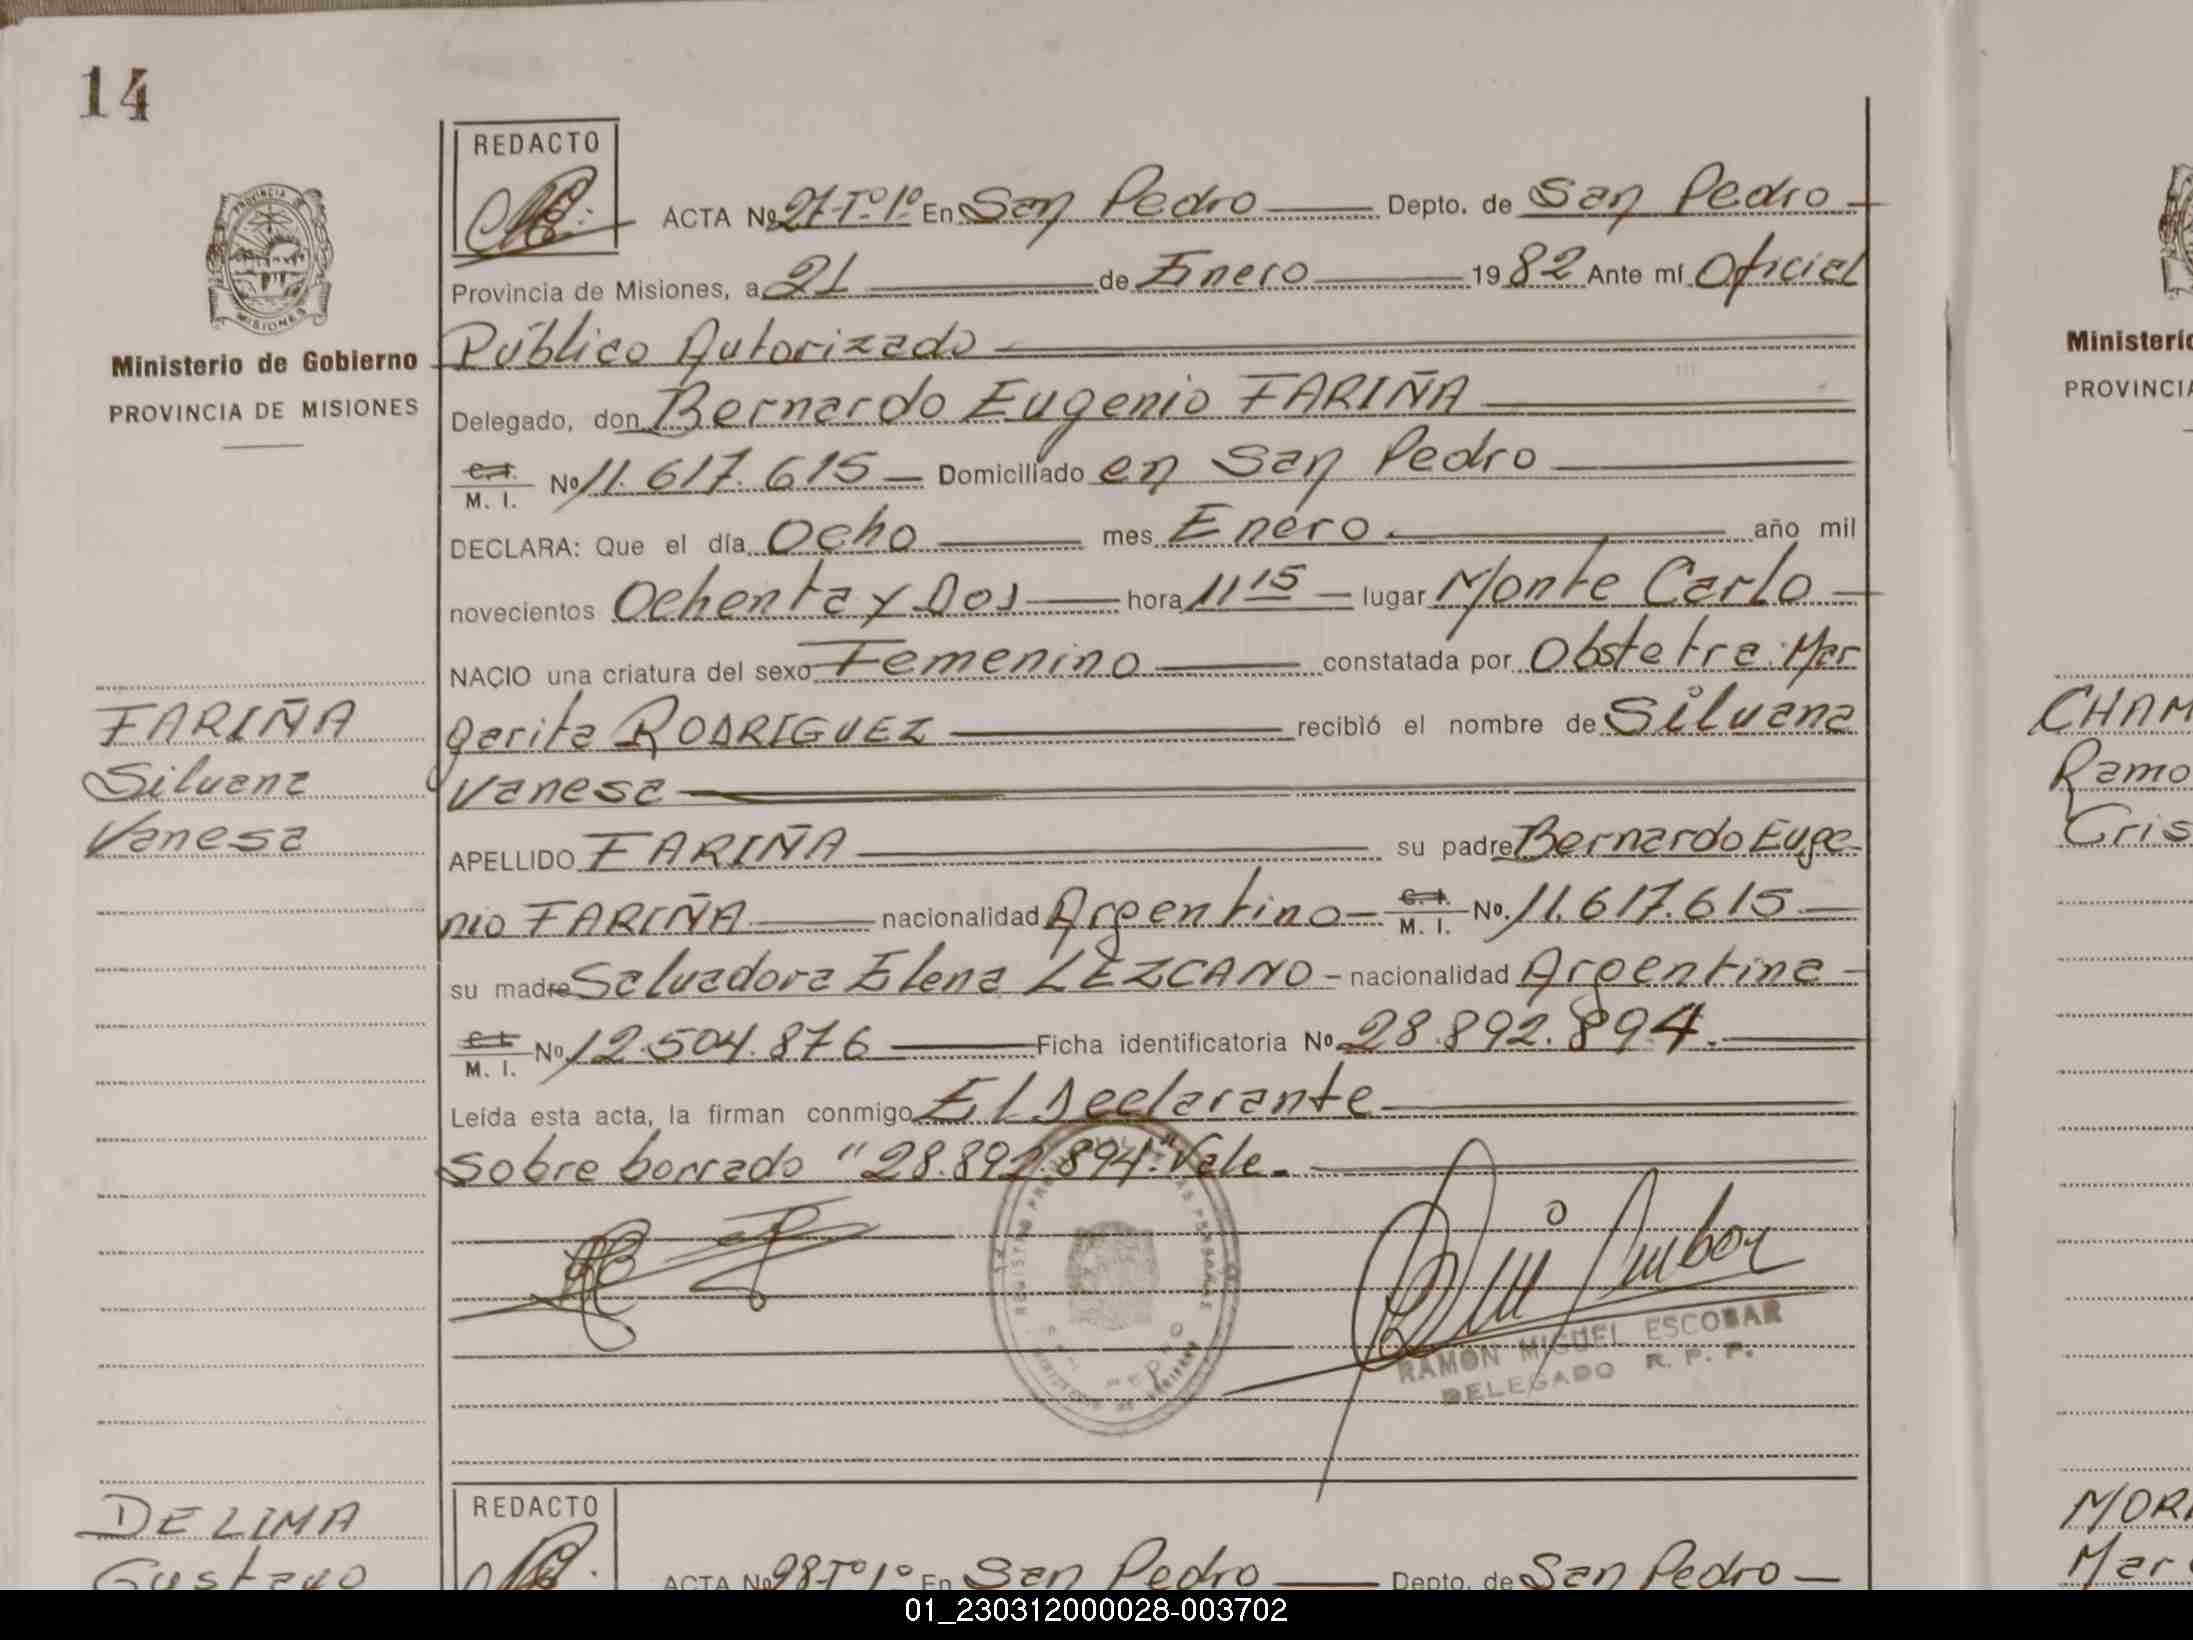 14
REDACTO
ACTA Nº 27-Tº 1º En San Pedro Depto. de San Pedro
Provincia de Misiones, a 21 de Enero 1982 Ante mí Oficial
Público Autorizado
Ministerio de Gobierno
PROVINCIA DE MISIONES
Delegado, don Bernardo Eugenio FARIÑA
C.I. M. I. Nº 11.617.615 Domiciliado en San Pedro
DECLARA: Que el día Ocho mes Enero año mil
novecientos Ochenta y Dos hora 11 15 lugar Monte Carlo
NACIO una criatura del sexo Femenino constatada por Obstetra: Mar
garita RODRIGUEZ recibió el nombre de Silvana
Vanesa
FARIÑA
Silvana
Vanesa
APELLIDO FARIÑA su padre Bernardo Euge
nio FARIÑA nacionalidad Argentino C.I. M. I. Nº. 11.617.615
su madre Salvadora Elena LEZCANO - nacionalidad Argentina
C.I. M. I. Nº 12.504.876 Ficha identificatoria Nº 28.892.894.
Leída esta acta, la firman conmigo El Declarante
Sobre borrado "28.892.894." Vale.
RAMON MIGUEL ESCOBAR
DELEGADO R. P. P.
DE LIMA
Gustavo
REDACTO
ACTA Nº 28-Tº 1º En San Pedro Depto. de San Pedro
Ministerio
PROVINCIA
CHAM
Ramo
Cris
MOR
Mar
01_230312000028-003702